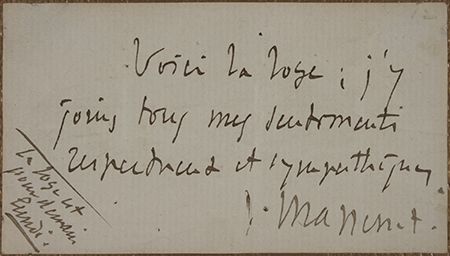 Voici la loge ; j'y
joins tous mes sentiments
respectueux et sympathiques
J. Massenet.
La loge est
pour demain
Lundi.